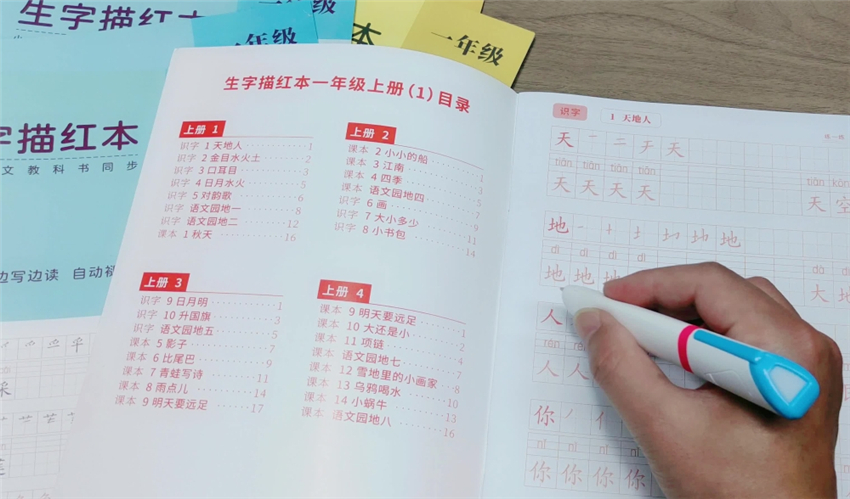 生字描红本
一年级
本
一年级
字描红本
文教科书同步
边写边读 自动
生字描红本一年级上册(1)目录
上册 1
识字 1 天地人 1
识字 2 金目水火土 2
识字 3 口耳目 3
识字 4 日月水火 5
识字 5 对韵歌 6
识字 语文园地一 8
识字 语文园地二 12
课本 1 秋天 16
上册 2
课本 2 小小的船 1
课本 3 江南 3
课本 4 四季 5
课本 语文园地四 7
识字 6 画 7
识字 7 大小多少 11
识字 8 小书包 14
上册 3
识字 9 日月明 1
识字 10 升国旗 3
识字 语文园地五 5
课本 5 影子 7
课本 6 比尾巴 9
课本 7 青蛙写诗 11
课本 8 雨点儿 14
课本 9 明天要远足 17
上册 4
课本 9 明天要远足 1
课本 10 大还是小 2
课本 11 项链 4
课本 语文园地七 7
课本 12 雪地里的小画家 8
课本 13 乌鸦喝水 10
课本 14 小蜗牛 13
课本 语文园地八 16
识字 1 天地人
天 一 二 天
tiān tiān tiān tiān tiān kōng
天 天 天 天 天 空
地 地 地
dì dì dì dà dì
地 地 地 大 地
人
rén
人 人
你
nǐ nǐ nǐ nǐ
你 你 你 你